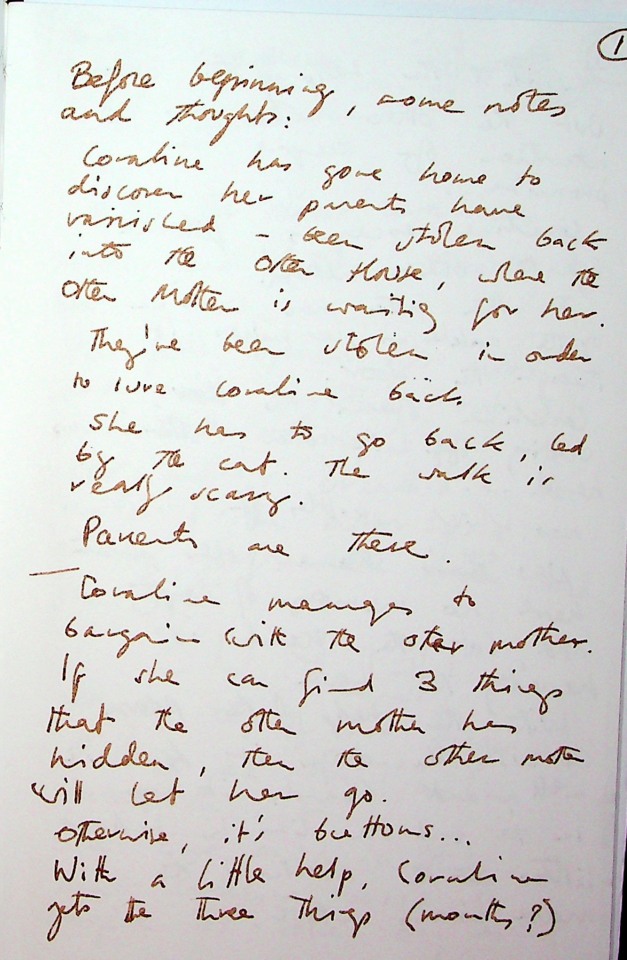 1
Before beginning, some notes
and thoughts:
Coraline has gone home to
discover her parents have
vanished – been stolen back
into the Other House, where the
Other Mother is waiting for her.
They've been stolen in order
to lure Coraline back.
She has to go back, led
by the cat. The walk is
really scary.
Parents are there.
— Coraline manages to
bargain with the other mother.
If she can find 3 things
that the other mother has
hidden, then the other mother
will let her go.
Otherwise, it's buttons...
With a little help, Coraline
gets the three things (months?)